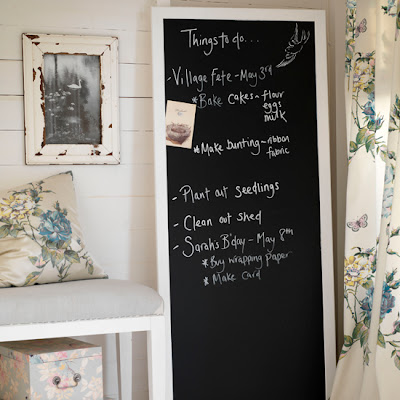 Things to do...
- Village Fete - May 3rd
* Bake cakes ~ flour
eggs
milk
* Make bunting ~ ribbon
fabric
- Plant out seedlings
- Clean out shed
- Sarah's B'day - May 8th
* Buy wrapping paper
* Make card